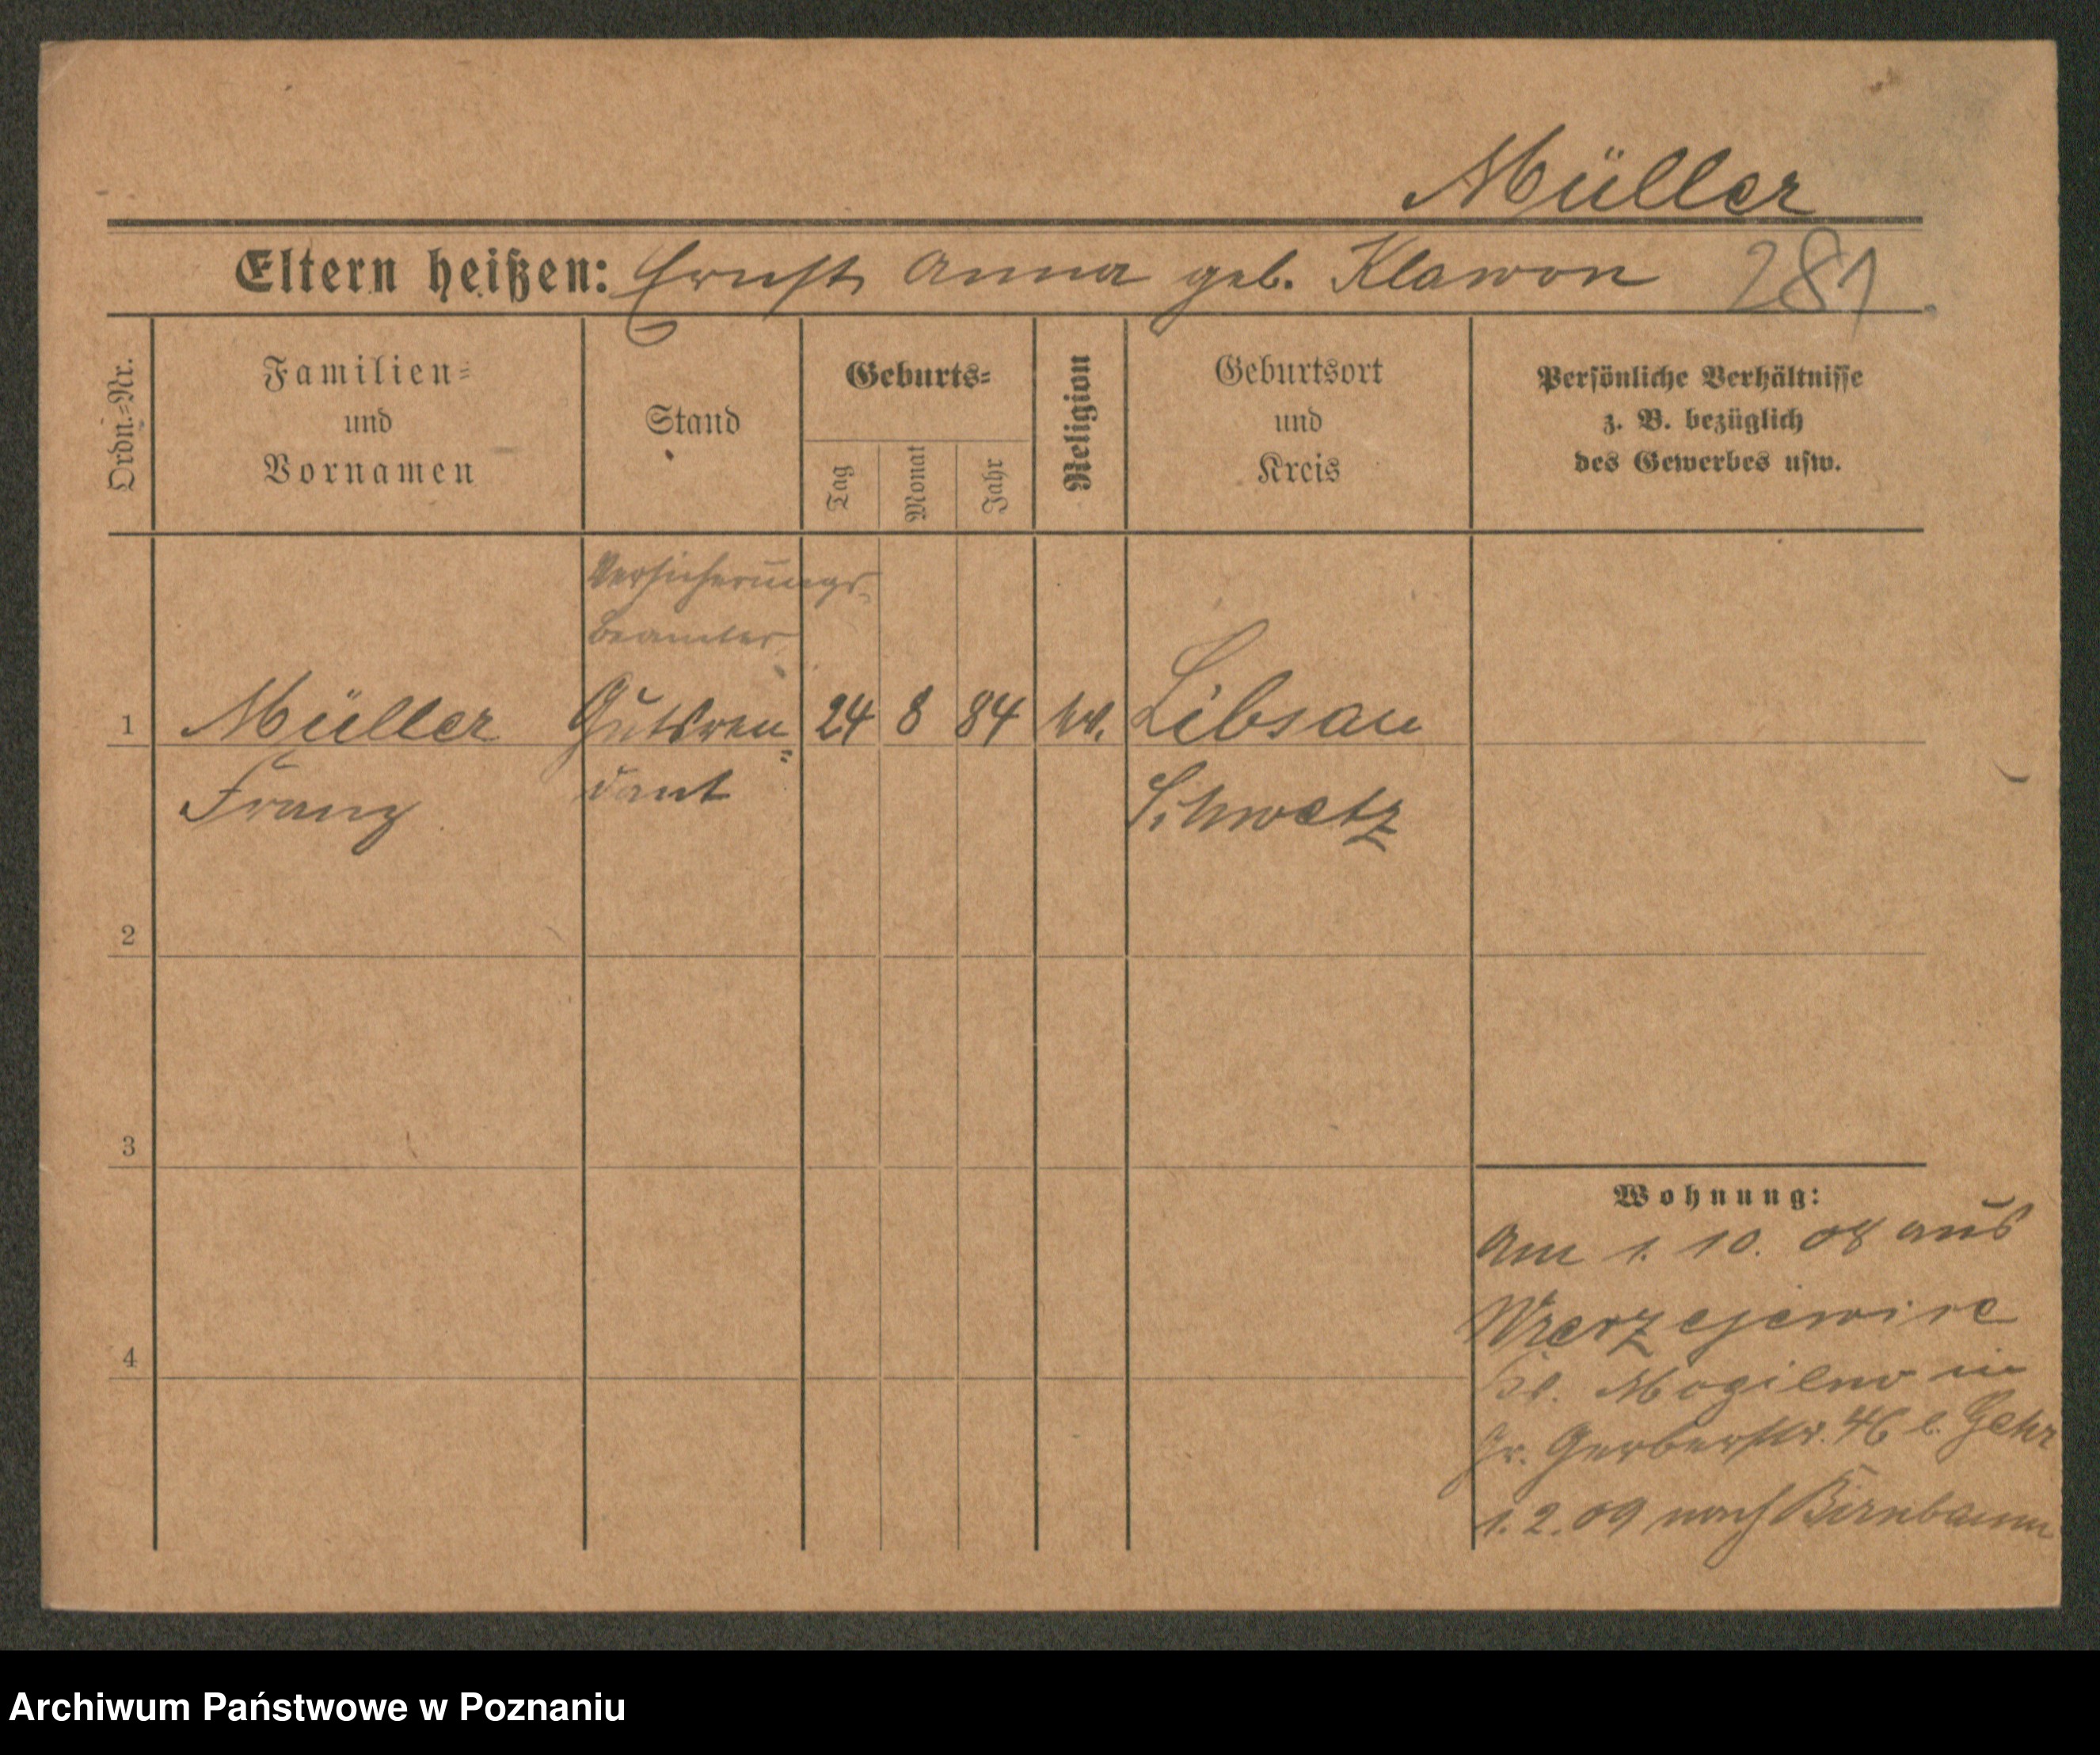 Müller
Eltern heißen: Ernst Anna geb. Klawon 281
Ordn.=Nr.
Familien=
und
Vornamen
Stand
Geburts=
Tag
Monat
Jahr
Religion
Geburtsort
und
Kreis
Persönliche Verhältnisse
z. B. bezüglich
des Gewerbes usw.
Versicherungs-
beamter
1 Müller Gutsren= 24 8 84 Libsau
Franz dant Schwetz
2
3
4
Wohnung:
Am 1. 10. 08 aus
Mogilno in
Gr. Gerberstr. 46 b.
1. 2. 09 nach Birnbaum
Archiwum Państwowe w Poznaniu